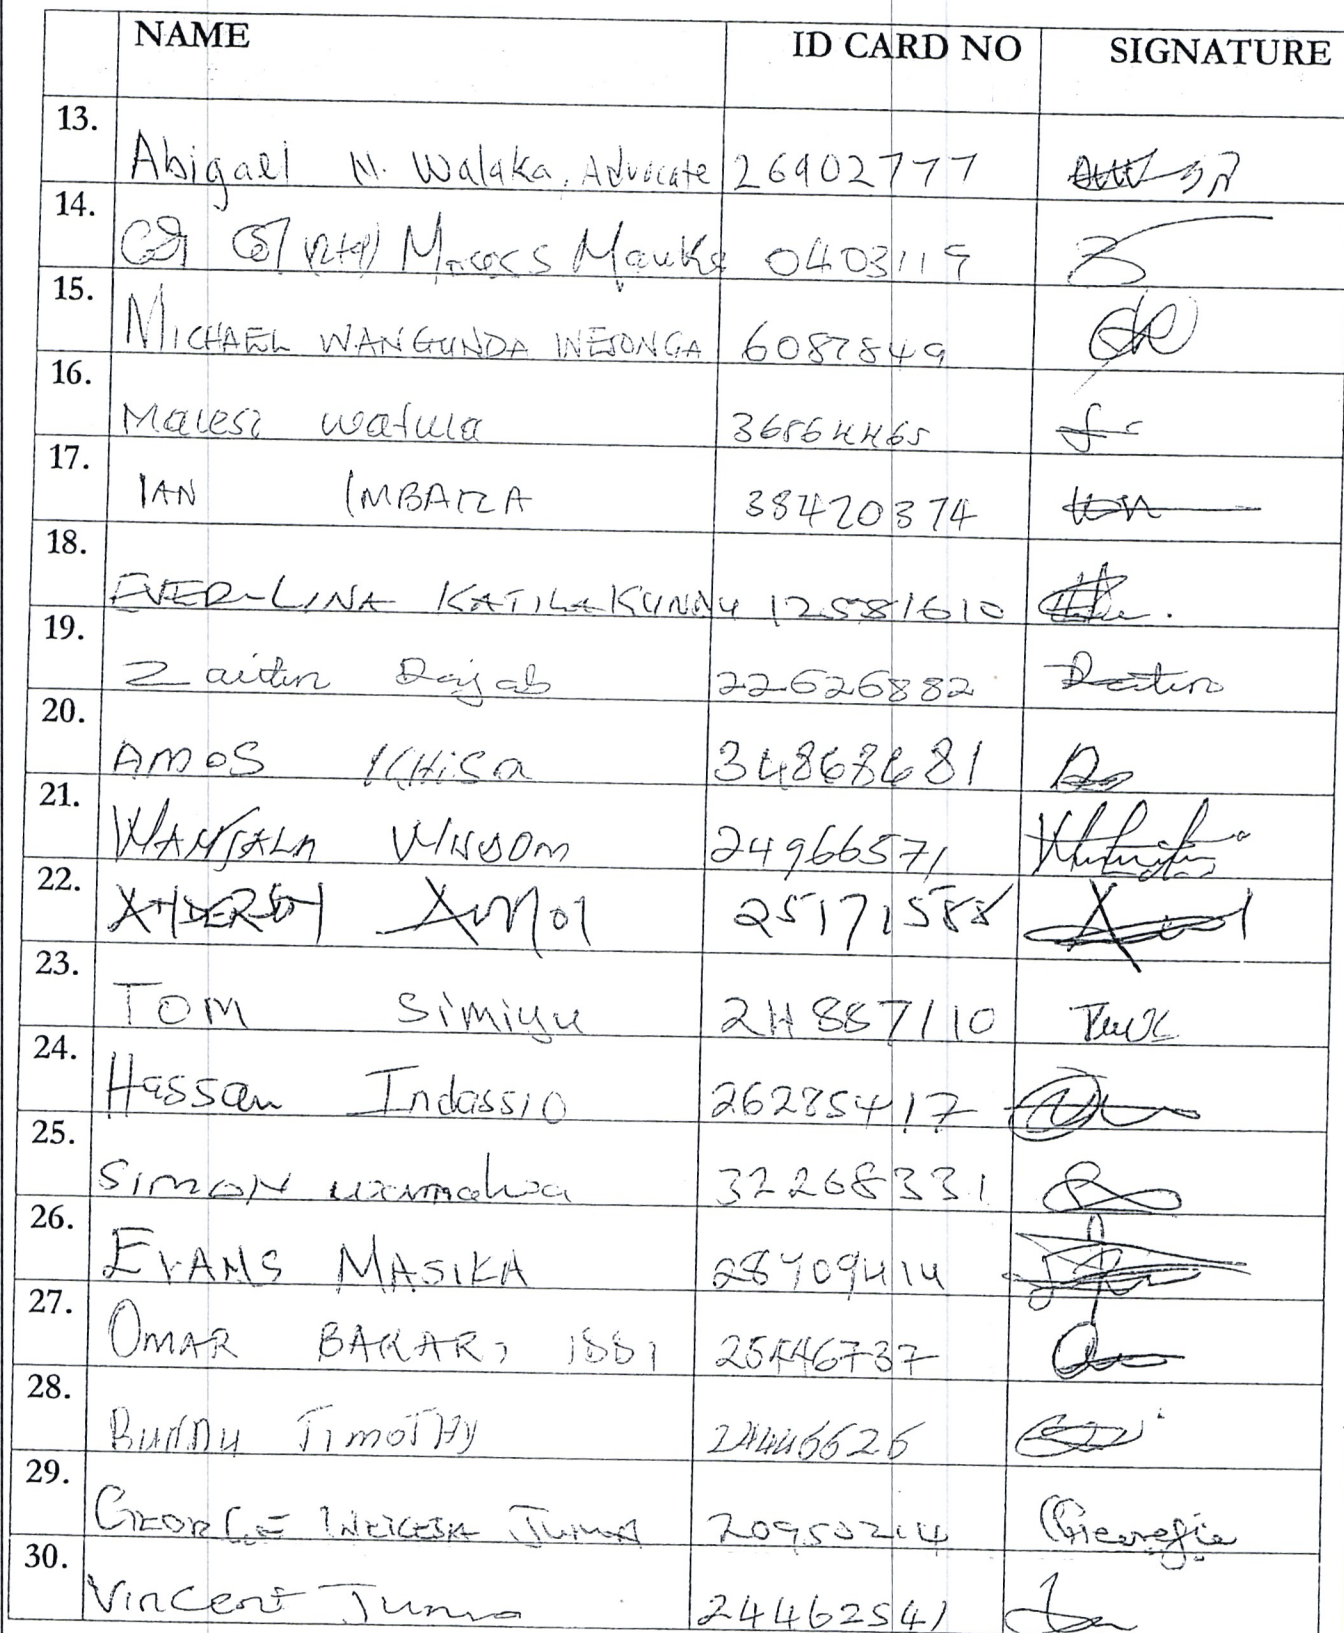 NAME ID CARD NO SIGNATURE
13. Abigael N. Walaka, Advocate 26902777
14. (Rtd) Moses Mauka 0403119
15. MICHAEL WANGUNDA WEJONGA 6087849
16. Malesi watula 36564465
17. IAN IMBAIZA 38420374
18. EVER-LINA KATILA KUNDU 12581610
19. Zaitun Rajab 22626882
20. AMOS KHISA 34868681
21. WANJALA WISDOM 24966571
22. 25171588
23. TOM Simiyu 24887110
24. Hassan Indassio 26285417
25. SIMON wamalwa 32268331
26. EVANS MASIKA 28709414
27. OMAR BAKARI 25446737
28. Bunny TIMOTHY 24446626
29. GEORGE WEKESA JUMA 20950214 George
30. Vincent Juma 24462541